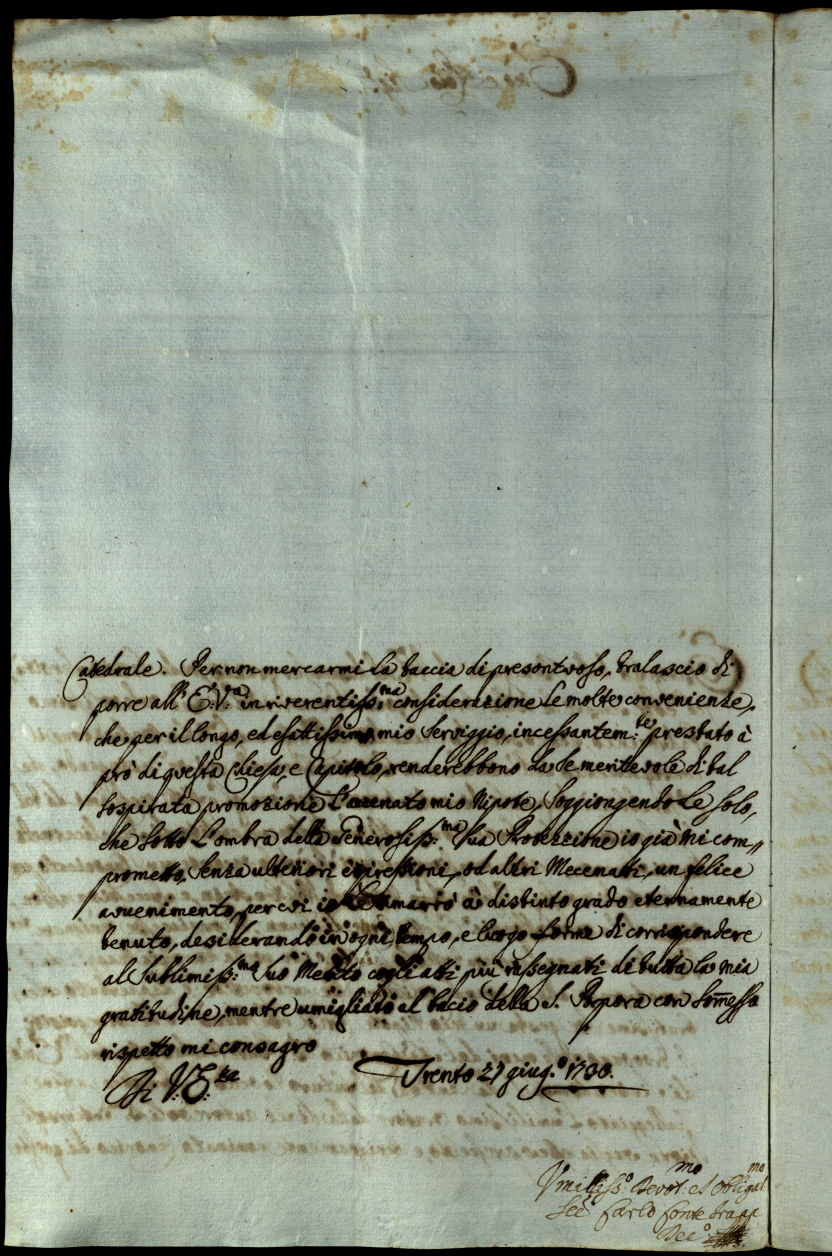 Catedrale. Per non mercarmi la taccia di presontuoso, tralascio di
porre all' E: V:ra in riverentiss:ma considerazione le molte convenienze,
che per il longo, ed esattissimo mio Serviggio, incessantem:te prestato à
prò di questa Chiesa, e Capitolo, renderebbono da se meritevole di tal
sospirata promozione l'accenato mio Nipote, Soggiongendole solo,
che sotto l'ombra della Generosiss:ma Sua Protezzione io già mi com„
prometto, senza ulteriori espressioni, od altri Mecenatti, un felice
avvenimento, per cui io Le rimarrò à distinto grado eternamente
tenuto, desiderando in ogni tempo, e luogo forme di corrispondere
al Sublimiss:mo Suo Merito cogli atti più rassegnati di tutta la mia
gratitudine, mentre umigliato al bacio della S. Porpora con somesso
rispetto mi consagro
Di V: E:za Trento 27 giug.o 1730.
Umiliss:o Devot:mo et Obligat:mo
Se:e Carlo Conte Trapp
Dec:o